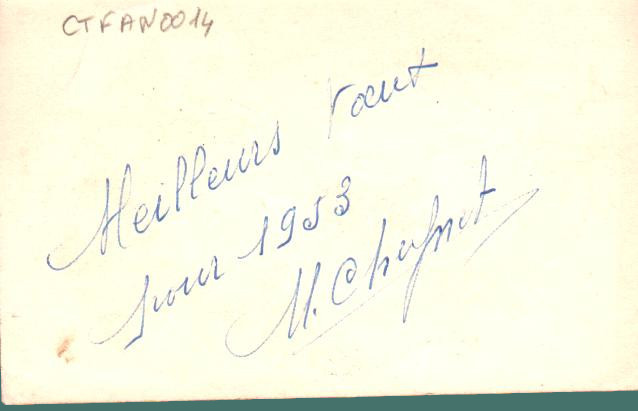 CTFAN0014
Meilleurs Vœux
pour 1953
M.